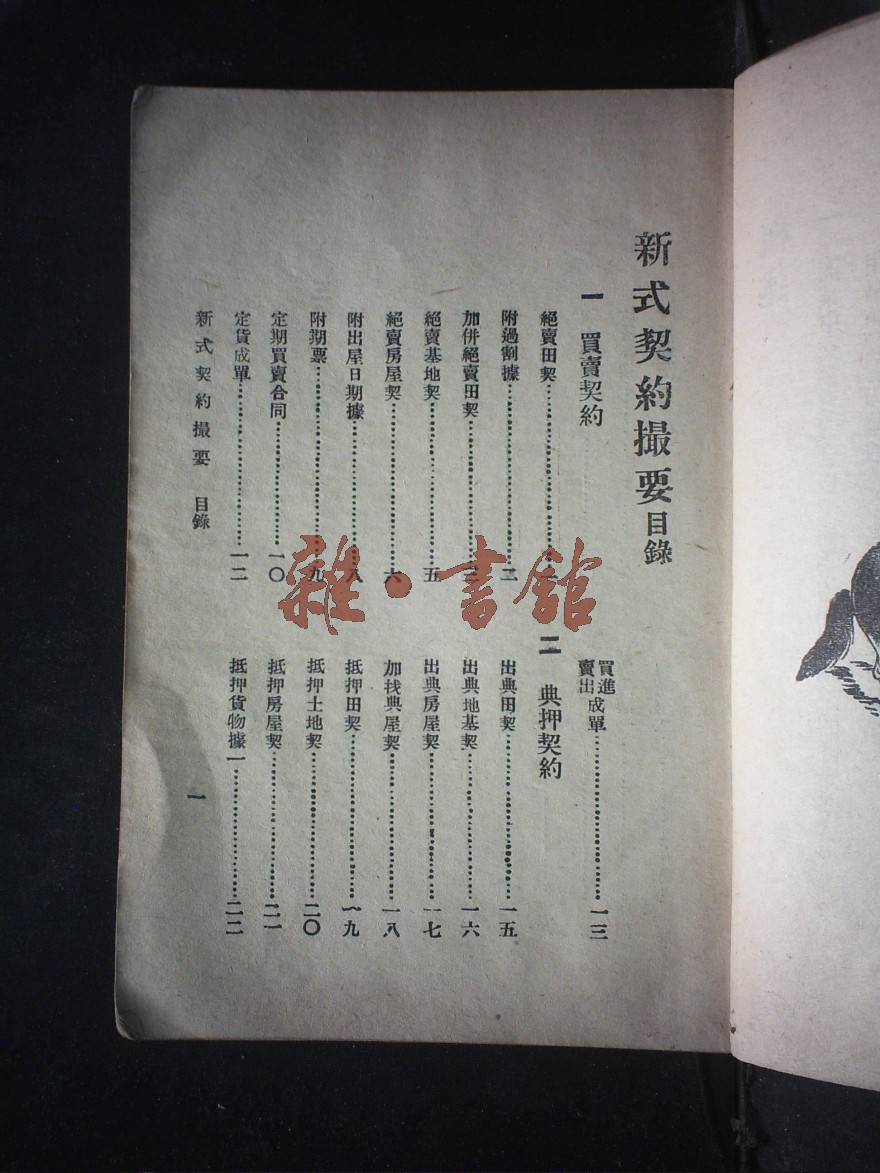 新式契約撮要目錄
一 買賣契約
絕賣田契⋯⋯一
附過割據⋯⋯三
加併絕賣田契⋯⋯三
絕賣基地契⋯⋯五
絕賣房屋契⋯⋯六
附出屋日期據⋯⋯八
附期票⋯⋯九
定期買賣合同⋯⋯一〇
定貨成單⋯⋯一二
買進賣出成單⋯⋯一三
二 典押契約
出典田契⋯⋯一五
出典地基契⋯⋯一六
出典房屋契⋯⋯一七
加找典屋契⋯⋯一八
抵押田契⋯⋯一九
抵押土地契⋯⋯二〇
抵押房屋契⋯⋯二一
抵押貨物據一⋯⋯二二
新式契約撮要 目錄
一
雜·書館